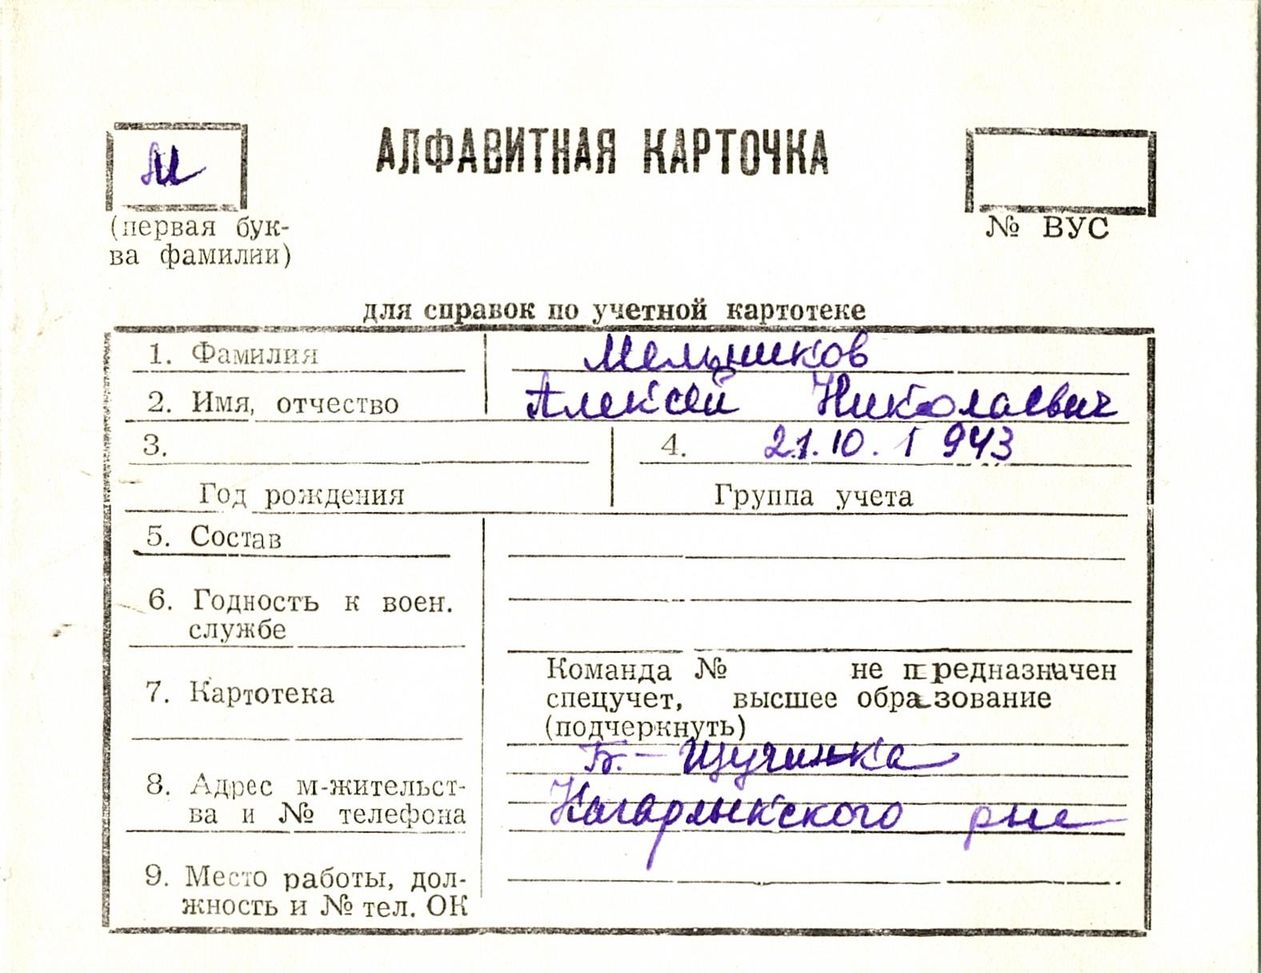 М
АЛФАВИТНАЯ КАРТОЧКА
(первая бук-
ва фамилии)
№ ВУС
для справок по учетной картотеке
1. Фамилия Мельников
2. Имя, отчество Алексей Николаевич
3. 4. 21.10.1943
Год рождения Группа учета
5. Состав
6. Годность к воен.
службе
7. Картотека
Команда № не предназначен
спецучет, высшее образование
(подчеркнуть)
8. Адрес м-жительст-
ва и № телефона
Б.-Щучинка
Кагарлыкского р-не
9. Место работы, дол-
жность и № тел. ОК